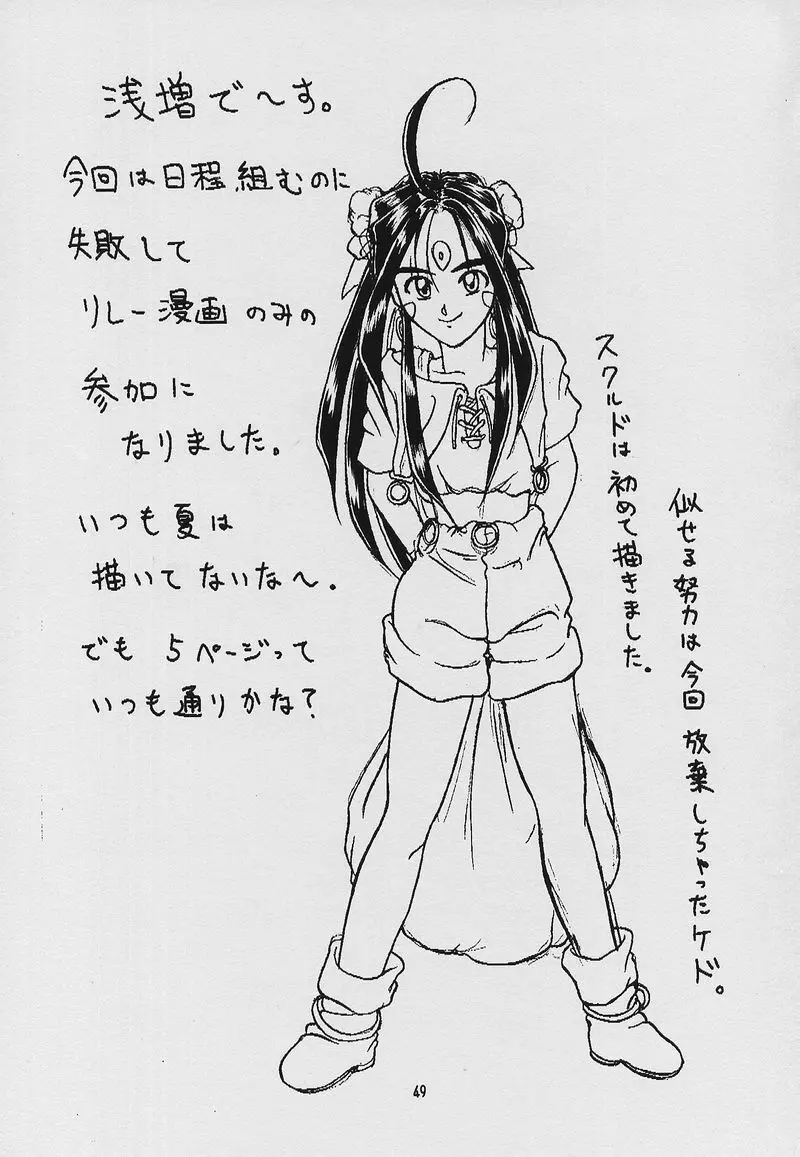 浅増で〜す。
今回は日程組むのに
失敗して
リレー漫画のみの
参加に
なりました。
いつも夏は
描いてないな〜。
でも 5ページって
いつも通りかな?
スクルドは初めて描きました。
似せる努力は今回放棄しちゃったケド。
49